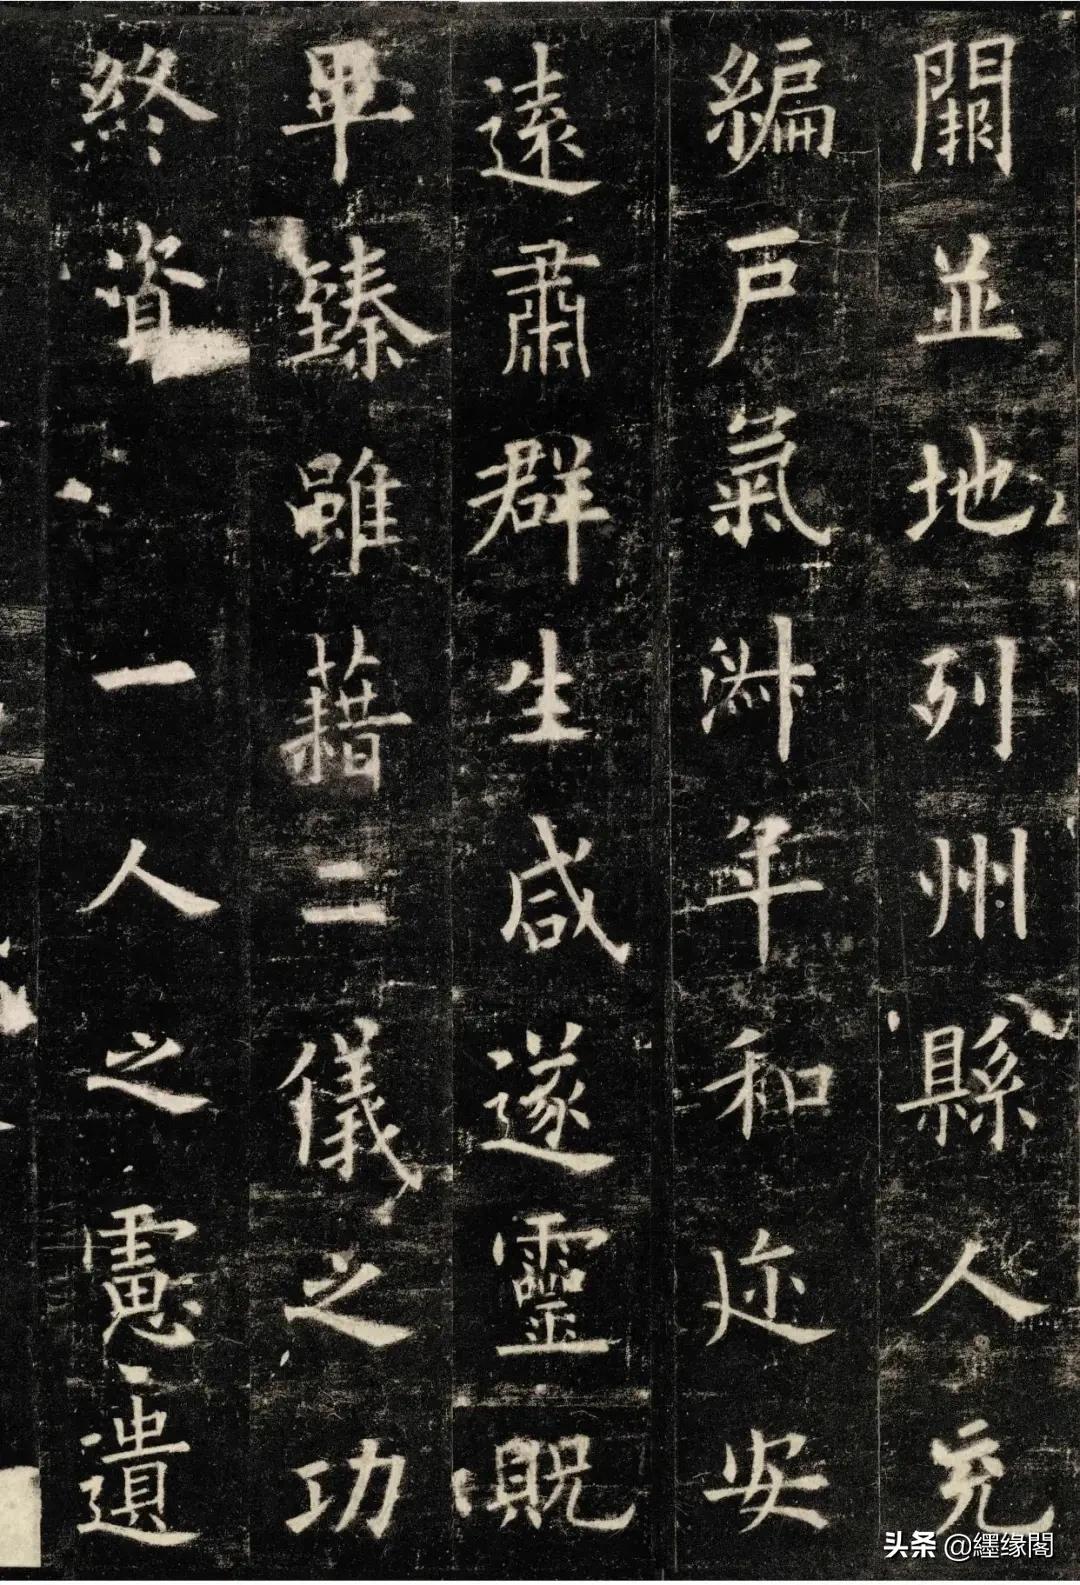 闕並地列州縣人充
編戶氣淑年和迩安
遠肅群生咸遂靈貺
畢臻雖藉二儀之功
終資一人之慮遺
头条 @纆缘閣